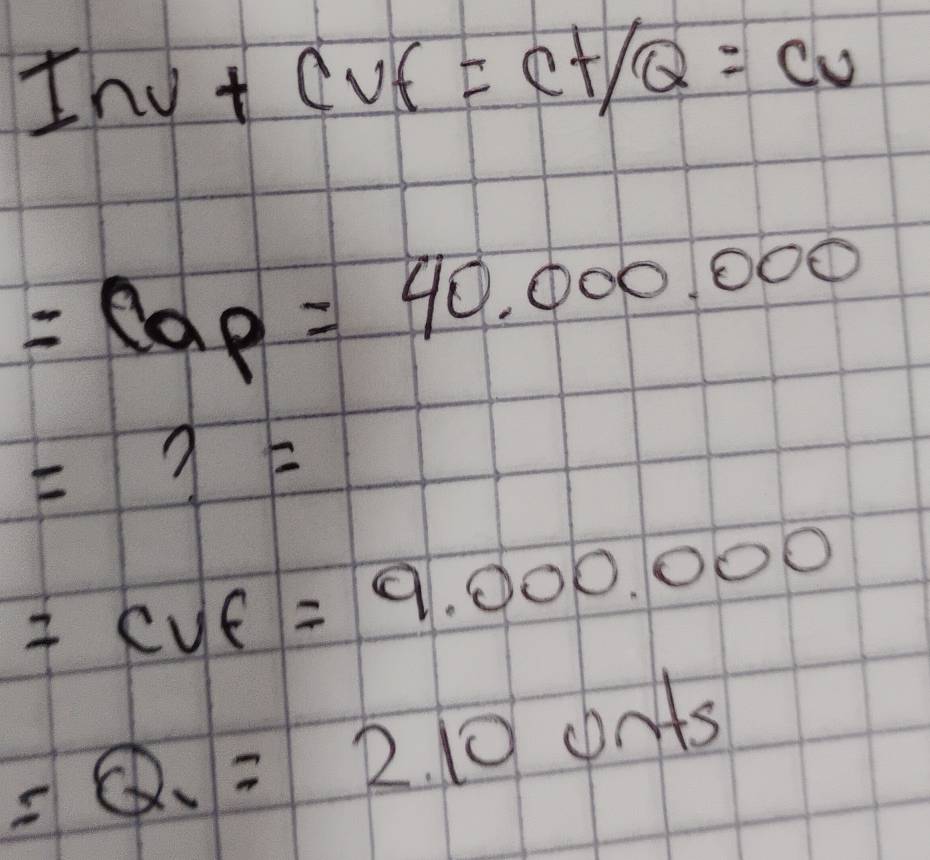 Inv + Cvf = Ct/Q = Cu
= Cap = 40.000.000
= ? =
= Cvf = 9.000.000
= Q. = 2.10 unts